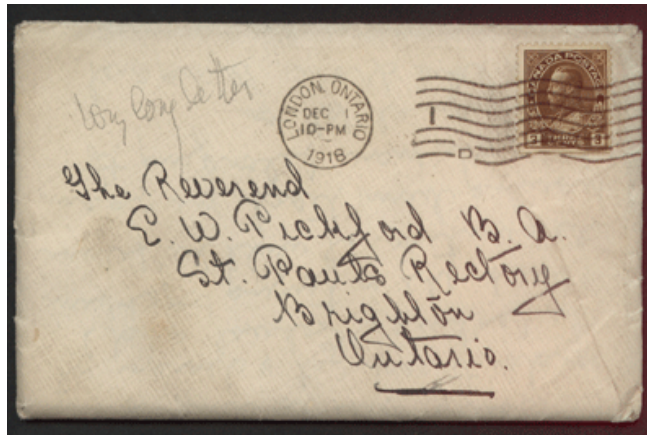 long long letter
LONDON, ONTARIO
DEC 1
10-PM
1918
1
D
CANADA POSTAGE
3 THREE CENTS 3
The Reverend
E. W. Pickford B. A.
St. Pauls Rectory
Brighton
Ontario.